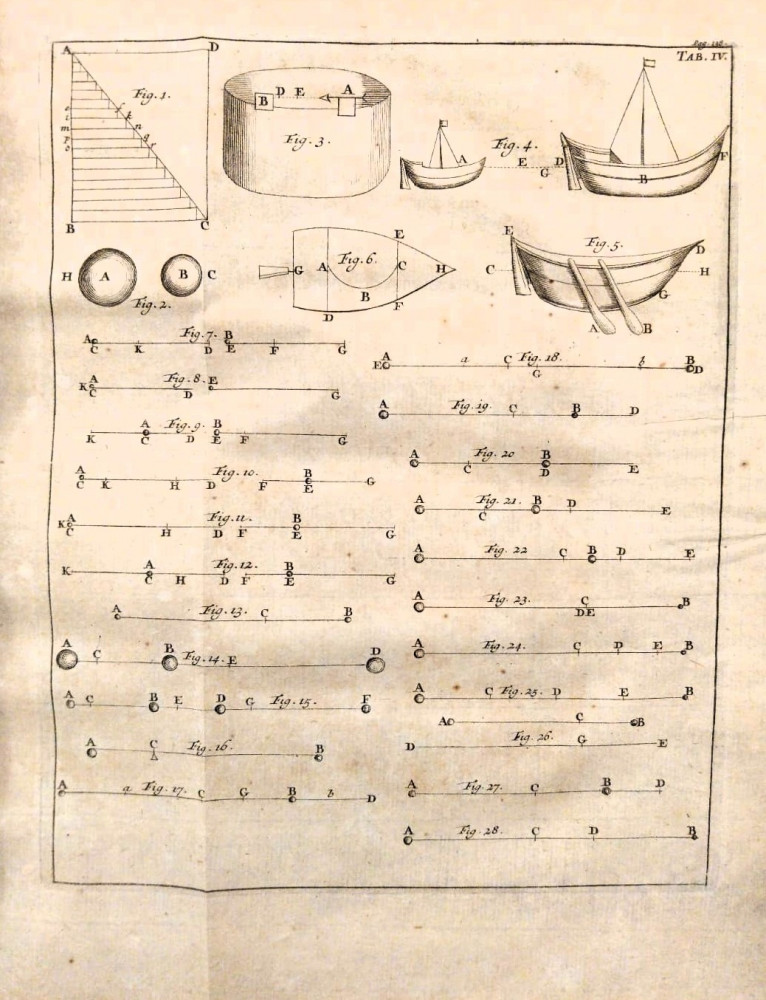 TAB. IV.
A D
Fig. 1.
B C
B D E A
Fig. 3.
A E G D
Fig. 4.
B F
H A B C
Fig. 2.
G A C H
E
Fig. 6.
B
D F
E
Fig. 5.
D
C H
G
A B
Fig. 7.
A B
C K D E F G
Fig. 8.
K A E
C D G
Fig. 9.
A B
K C D E F G
Fig. 10.
A B
C K H D F E G
Fig. 11.
K A B
C H D F E G
Fig. 12.
K A B
C H D F E G
Fig. 13.
A C B
Fig. 14.
A C B E D
Fig. 15.
A C B E D G F
Fig. 16.
A C B
Fig. 17.
A a C G B b D
Fig. 18.
E A a C b B D
G
Fig. 19.
A C B D
Fig. 20
A B
C D E
Fig. 21.
A B D
C E
Fig. 22
A C B D E
Fig. 23.
A C B
D E
Fig. 24.
A C D E B
Fig. 25.
A C D E B
A C B
Fig. 26.
D G E
Fig. 27.
A C B D
Fig. 28.
A C D B